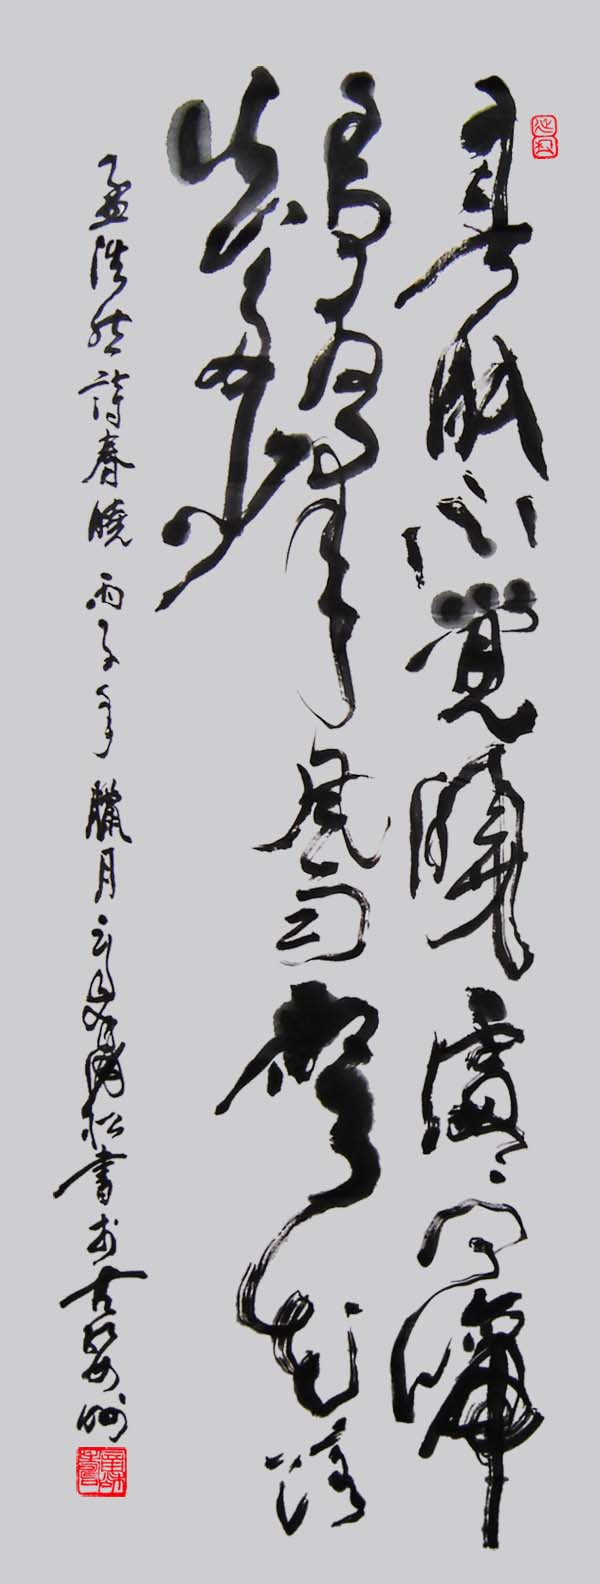 春眠不覺曉處〻聞啼
鳥夜來風雨聲花落
知多少
孟浩然詩春曉 丙子年 臘月 松書於古婺州